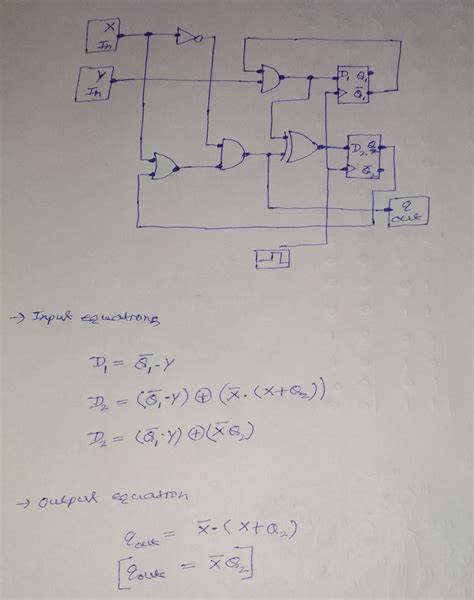 X
In
Y
In
D₁ Q₁
Q̅₁
D₂ Q₂
Q̅₂
q
out
→ Input equations
D₁ = Q̅₁·Y
D₂ = (Q̅₁·Y) ⊕ (X̅·(X+Q₂))
D₂ = (Q̅₁·Y) ⊕ (X̅Q₂)
→ Output equation
qout = X̅·(X+Q₂)
[qout = X̅Q₂]